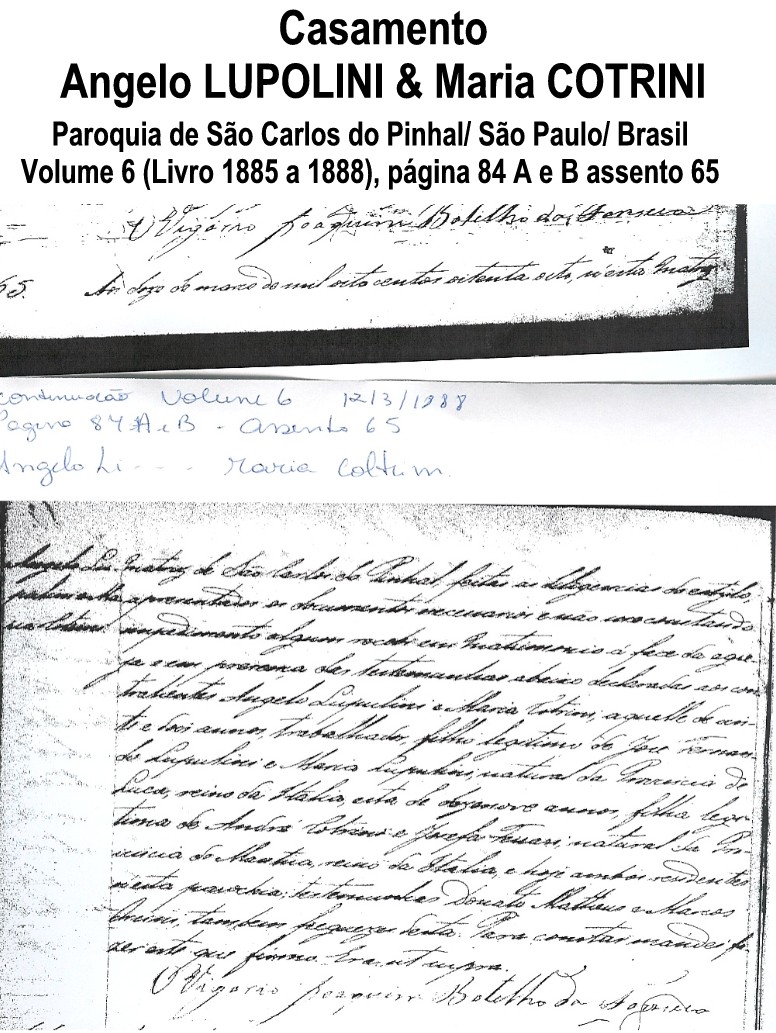 Casamento
Angelo LUPOLINI & Maria COTRINI
Paroquia de São Carlos do Pinhal/ São Paulo/ Brasil
Volume 6 (Livro 1885 a 1888), página 84 A e B assento 65
O Vigario Joaquim Botelho da Fonseca
65. Aos doze de março de mil oito centos oitenta oito, n'esta Matriz
continuação Volume 6 12/3/1988
Pagina 84 A e B - Assento 65
Angelo Li - - - Maria Coltrim.
Angelo Lu Matriz de São Carlos do Pinhal, feitas as deligencias do estylo,
apresentados os documentos necessarios e não me constando
impedimento algum recebi em Matrimonio á face da Igre-
ja e em presença das testemunhas abaixo declaradas aos con-
trahentes Angelo Lupulini e Maria Cotrini, aquelle de vin-
te e dois annos, trabalhador, filho legitimo de José Fernan-
do Lupulini e Maria Lupulini, natural da Provincia de
Luca, reino da Italia, esta de dezenove annos, filha legi-
tima de André Cotrini e Josefa Ferrari, natural da Pro-
vincia de Mantua, reino da Italia, e hoje ambos residentes
n'esta parochia; testemunhas Donato Matheus e Marcos
tambem freguezes desta. Para constar mandei fa-
zer este que firmo. Era ut supra.
O Vigario Joaquim Botelho da Fonseca